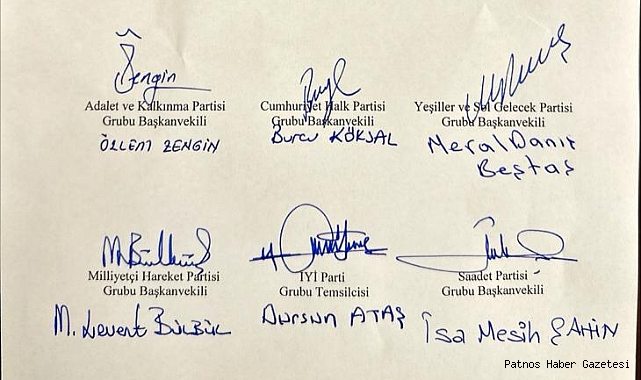 Zengin
Adalet ve Kalkınma Partisi
Grubu Başkanvekili
ÖZLEM ZENGİN
Cumhuriyet Halk Partisi
Grubu Başkanvekili
Burcu KÖKSAL
Yeşiller ve Sol Gelecek Partisi
Grubu Başkanvekili
Meral Danış
Beştaş
M. Bülbül
Milliyetçi Hareket Partisi
Grubu Başkanvekili
M. Levent BÜLBÜL
İYİ Parti
Grubu Temsilcisi
Dursun ATAŞ
Saadet Partisi
Grubu Başkanvekili
İsa Mesih ŞAHİN
Patnos Haber Gazetesi